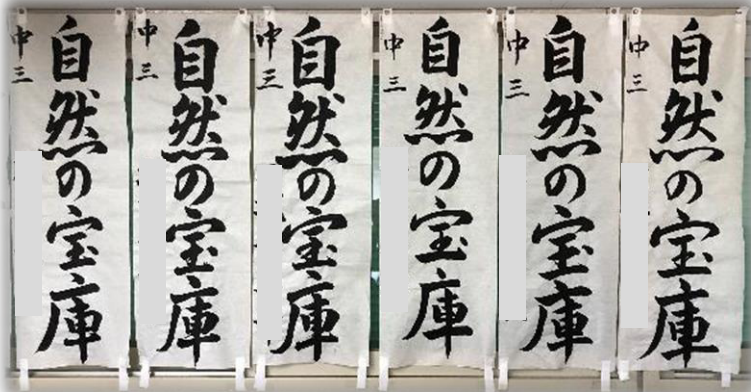 自然の宝庫
中三
自然の宝庫
中三
自然の宝庫
中三
自然の宝庫
中三
自然の宝庫
中三
自然の宝庫
中三